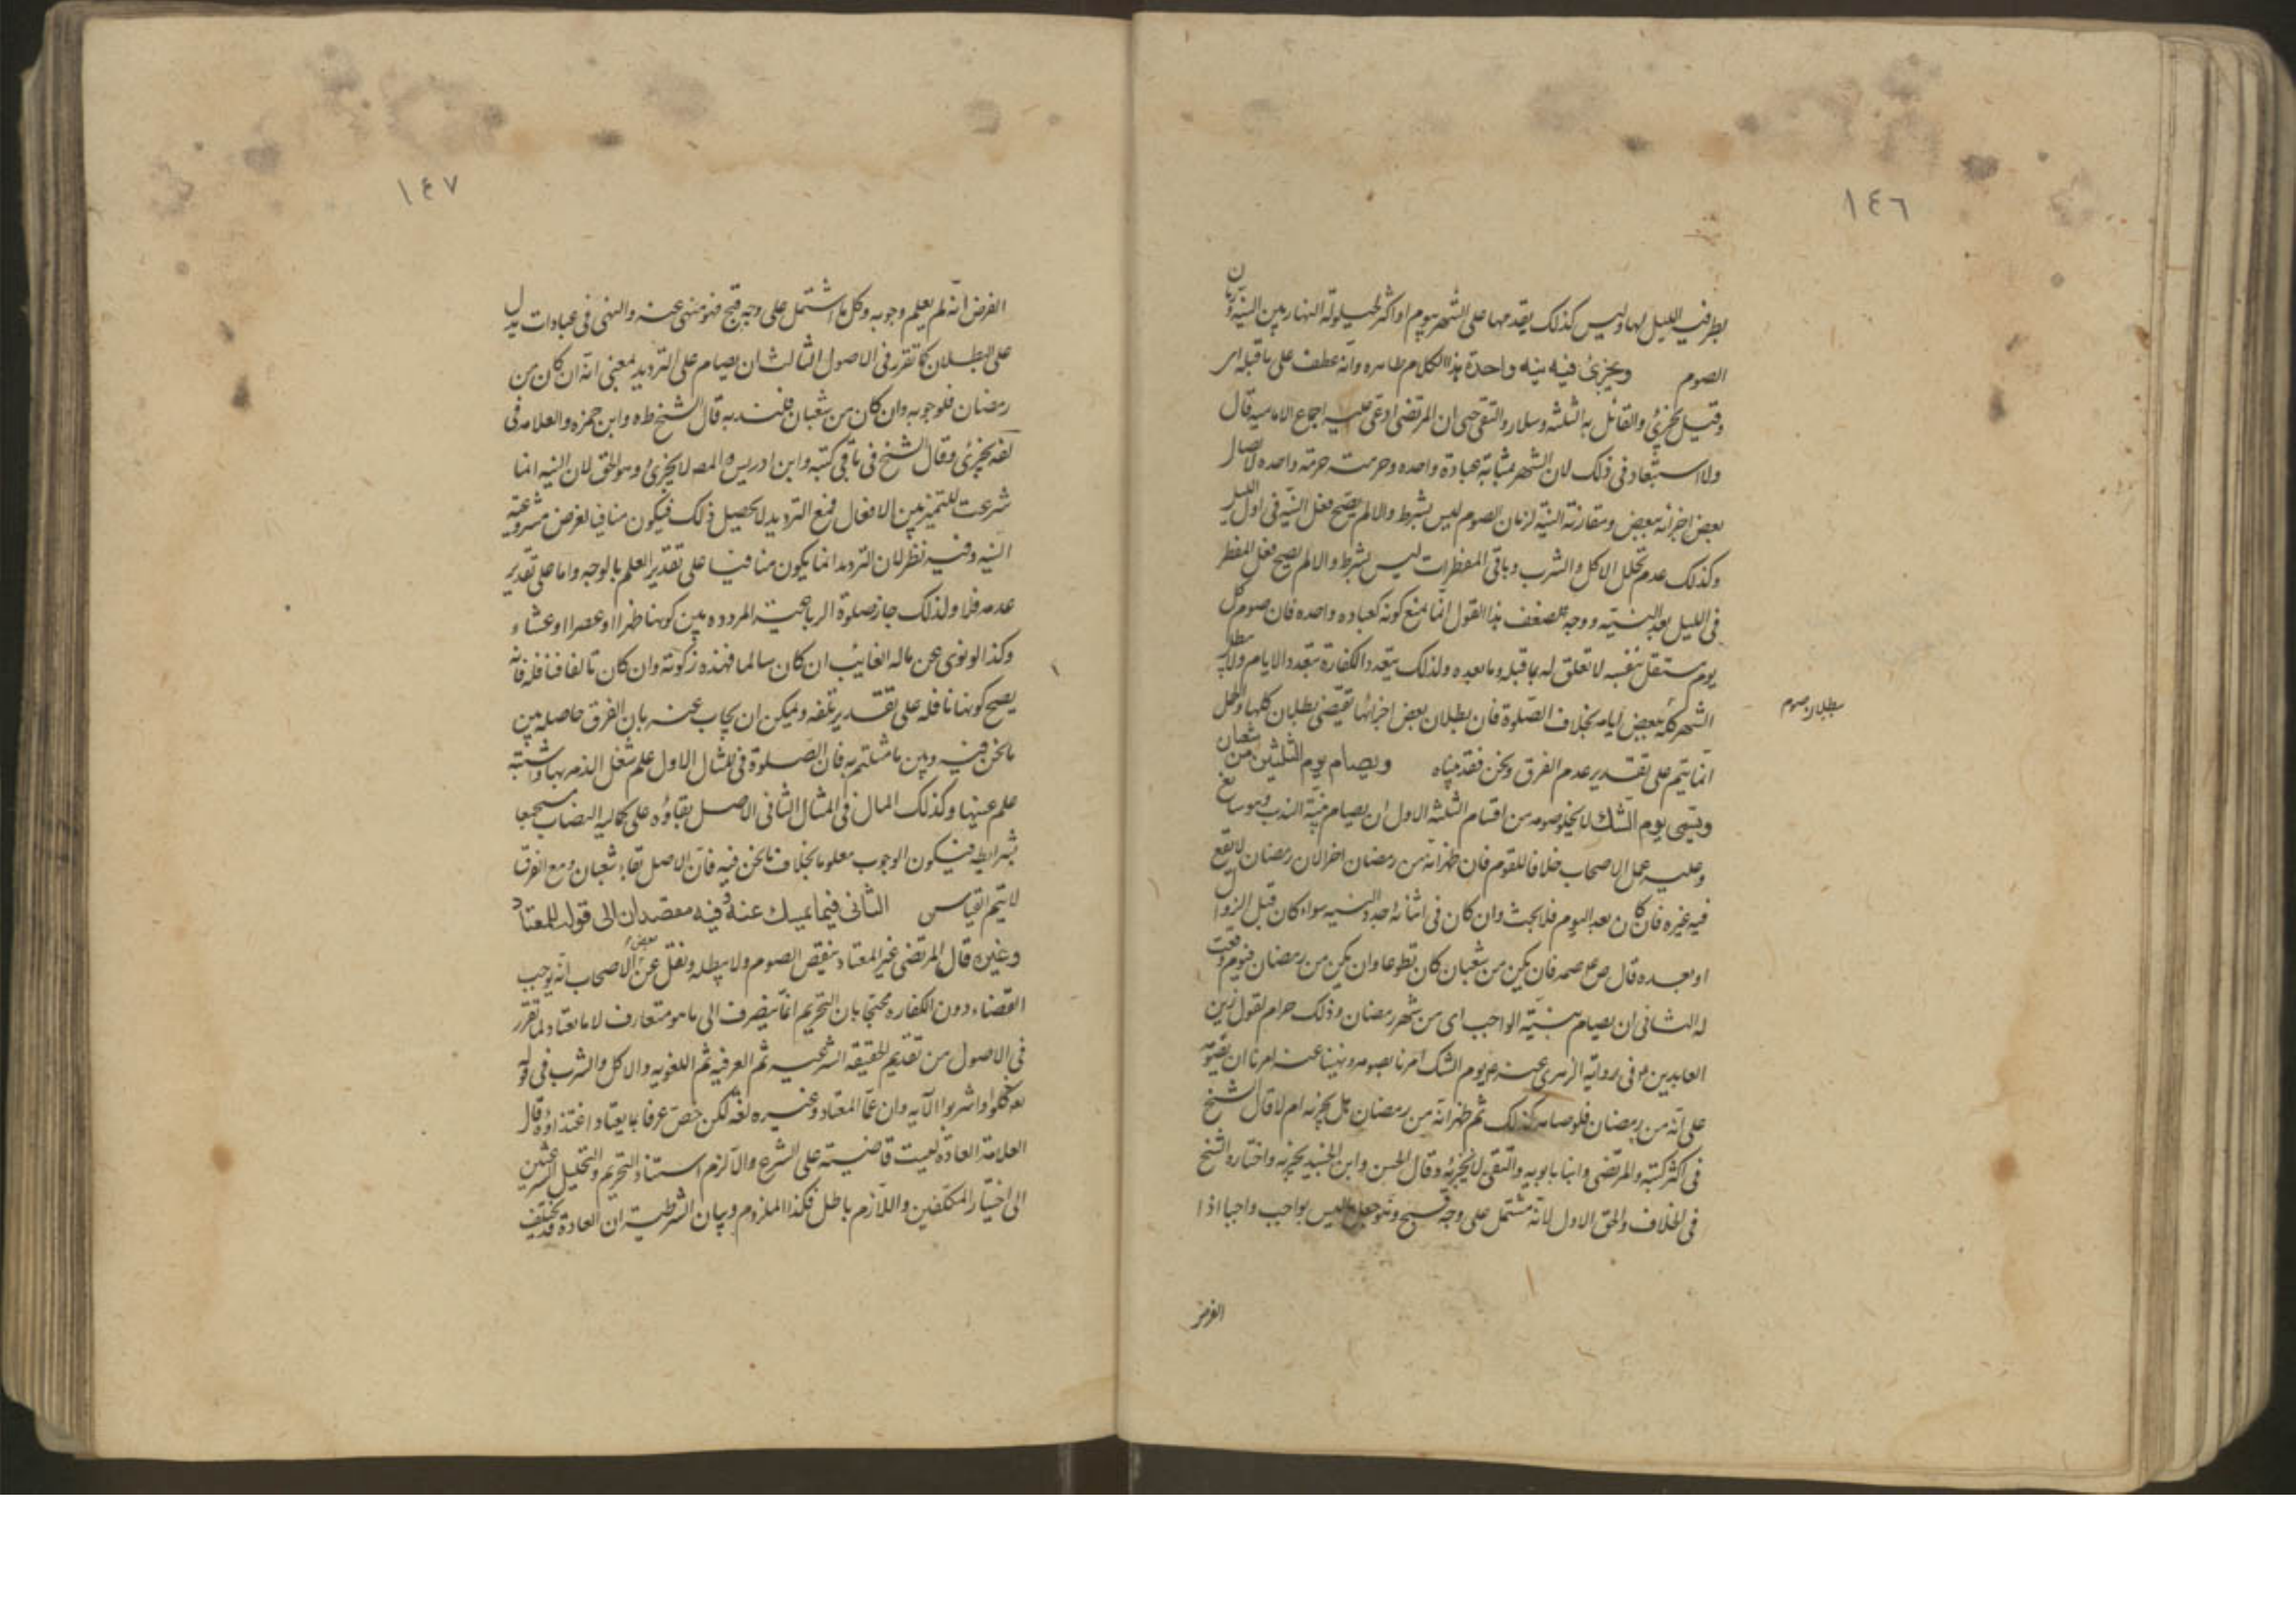 ١٤٦
بطرفيه الليل لها وليس كذلك يقدمها على الشهر بيوم او اكثر لحيلولة النهار بين النية وزمان
الصوم ويجزئ فيه نية واحدة هذا الكلام ظاهره وانه عطف على ما قبله اى
وقيل يجزئ والقائل به الثلثه وسلار والتقى حتى ان المرتضى ادعى عليه اجماع الاماميه قال
ولا استبعاد فى ذلك لان الشهر بمثابة عبادة واحده وحرمته حرمة واحده لاتصال
بعض اجزائه ببعض ومقارنة النية لزمان الصوم ليس بشرط والا لم يصح فعل النية فى اول الليل
وكذلك عدم تخلل الاكل والشرب وباقى المفطرات ليس بشرط والا لم يصح فعل المفطر
فى الليل بعد النية ووجه ضعف هذا القول انا نمنع كونه كعباده واحده فان صوم كل
يوم مستقل بنفسه لا تعلق له بما قبله وما بعده ولذلك يتعدد الكفارة بتعدد الايام ولا يبطل
بطلان صوم
الشهر كله ببعض ايامه بخلاف الصلوة فان بطلان بعض اجزائها يقتضى بطلان كلها والحمل
انما يتم على تقدير عدم الفرق ونحن فقد بيناه ويصام يوم الثلثين من شعبان
ويسمى يوم الشك لا يخلو صومه من اقسام الثلثة الاول ان يصام بنية الندب وهو سائغ
وعليه عمل الاصحاب خلافا للقوم فان ظهر انه من رمضان اجزا لان رمضان لا يقع
فيه غيره فان كان بعد اليوم فلا بحث وان كان فى اثنائه جدد النية سواء كان قبل الزوال
او بعده قال ص فان يكن من شعبان كان تطوعا وان يكن من رمضان فيوم وفقت
له الثانى ان يصام بنية الواجب اى من شهر رمضان وذلك حرام لقول زين
العابدين م فى رواية الزهرى عنه م يوم الشك امرنا بصومه ونهينا عنه امرنا ان نصومه
على انه من رمضان فلو صامه كذلك ثم ظهر انه من رمضان هل يجزيه ام لا قال الشيخ
فى اكثر كتبه والمرتضى وابنا بابويه والتقى لا يجزئه وقال الحسن وابن الجنيد يجزيه واختاره الشيخ
فى الخلاف والحق الاول لانه مشتمل على وجه قبيح وهو جعل ما ليس بواجب واجبا اذا
الفرض
١٤٧
الفرض انه لم يعلم وجوبه وكل ما اشتمل على وجه قبيح فهو منهى عنه والنهى فى عبادات يدل
على البطلان كما تقرر فى الاصول الثالث ان يصام على الترديد بمعنى انه ان كان من
رمضان فلوجوبه وان كان من شعبان فلندبه قال الشيخ ط وابن حمزه والعلامه فى
لف يجزئ وقال الشيخ فى باقى كتبه وابن ادريس والمصه لا يجزئ وهو الحق لان النيه انما
شرعت للتميز بين الافعال فمع الترديد لا يحصل ذلك فيكون منافيا لغرض مشروعية
النيه وفيه نظر لان التردد انما يكون منافيا على تقدير العلم بالوجه واما على تقدير
عدمه فلا ولذلك جاز صلوة الرباعية المردده بين كونها ظهرا او عصرا او عشاء
وكذا لو نوى عن ماله الغايب ان كان سالما فهذه زكوته وان كان تالفا فنافله فانه
يصح كونها نافله على تقدير تلفه ويمكن ان يجاب عنه بان الفرق حاصل بين
ما نحن فيه وبين ما مثلتم به فان الصلوة فى المثال الاول علم شغل الذمه بها واشتبه
علم عينها وكذلك المال فى المثال الثانى الاصل بقاؤه على كمالية النصاب مستجمعا
بشرايطه فيكون الوجوب معلوما بخلاف ما نحن فيه فان الاصل بقاء شعبان ومع الفرق
لا يتم القياس الثانى فيما يمسك عنه وفيه مقصدان الى قوله المعتاد
وغيره قال المرتضى غير المعتاد ينقص الصوم ولا يبطله ونقل عن بعض الاصحاب انه يوجب
القضاء دون الكفاره محتجا بان التحريم انما ينصرف الى ما هو متعارف لا ما يعتاد ولما تقرر
فى الاصول من تقديم الحقيقه الشرعيه ثم العرفيه ثم اللغويه والاكل والشرب فى قوله
تع كلوا واشربوا الآيه وان عما المعتاد وغيره لغة لكن خص عرفا بما يعتاد اغتذاؤه قال
العلامة العادة ليست قاضية على الشرع والا لزم استناد التحريم والتحليل الشرعيين
الى اختيار المكلفين واللازم باطل فكذا الملزوم وبيان الشرطية ان العادة قد يختلف